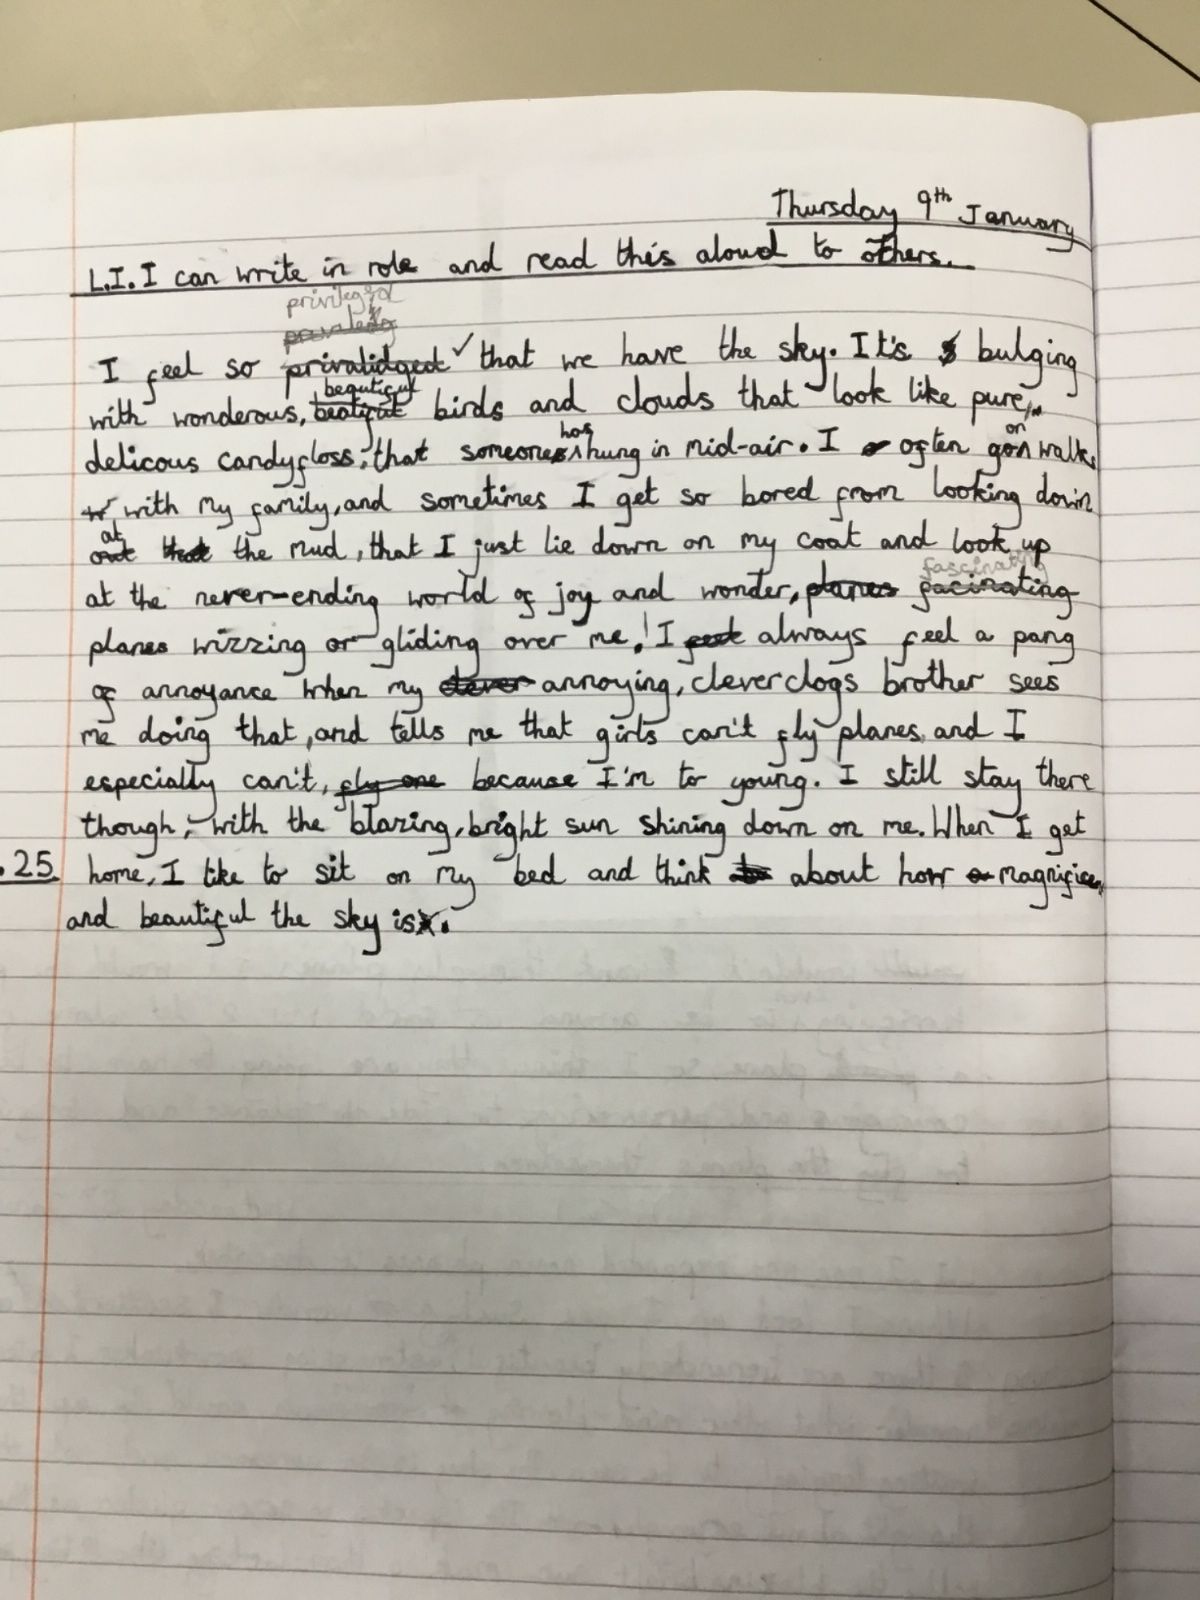 Thursday 9th January
L.I. I can write in role and read this aloud to others.
privileged
I feel so privalidged ✓ that we have the sky. It's bulging
beautiful
with wonderous, beatiful birds and clouds that look like pure,
has
on
delicous candyfloss, that someone hung in mid-air. I often go walks
with my family, and sometimes I get so bored from looking down
at
the mud, that I just lie down on my coat and look up
fascinating
at the never-ending world of joy and wonder, planes facinating
planes wizzing or gliding over me! I always feel a pang
of annoyance when my clever annoying, cleverclogs brother sees
me doing that, and tells me that girls can't fly planes, and I
especially can't, fly one because I'm to young. I still stay there
though, with the blazing, bright sun shining down on me. When I get
.25 home, I like to sit on my bed and think about how magnificen
and beautiful the sky is.